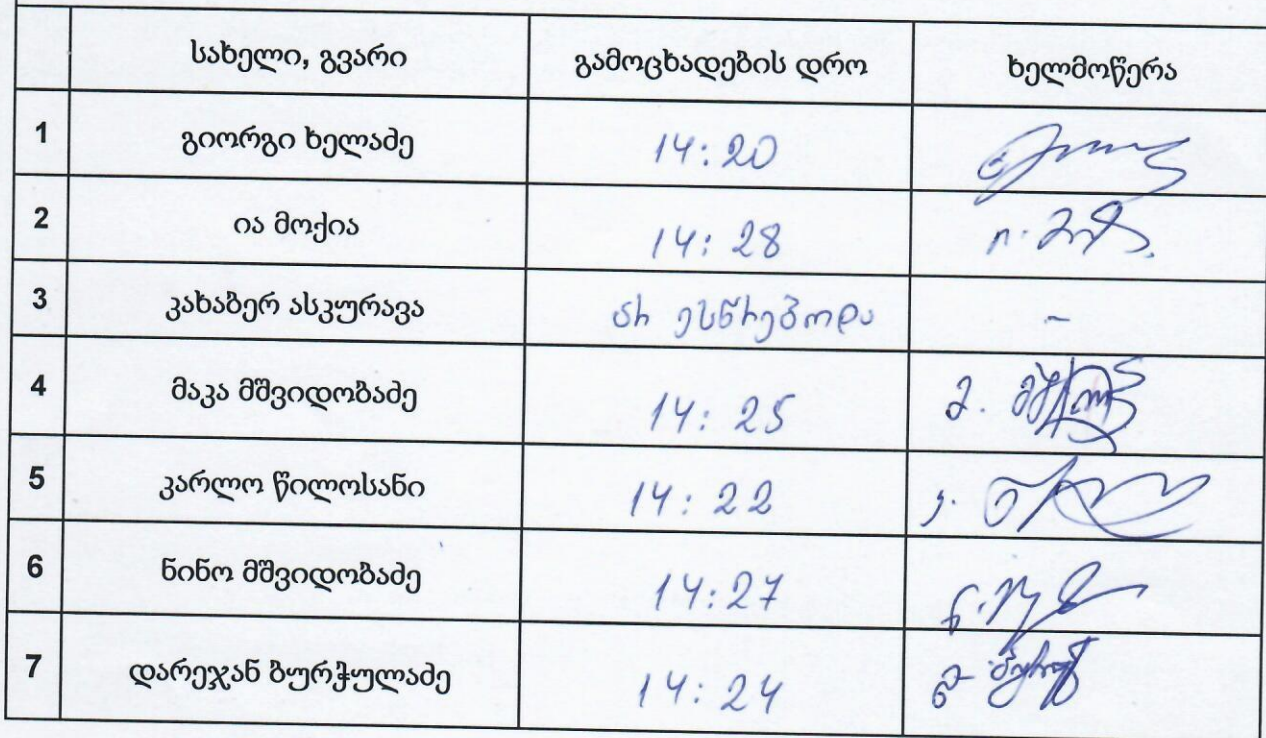 სახელი, გვარი გამოცხადების დრო ხელმოწერა
1 გიორგი ხელაძე 14:20
2 ია მოქია 14:28
3 კახაბერ ასკურავა არ ესწრებოდა -
4 მაკა მშვიდობაძე 14:25
5 კარლო წილოსანი 14:22
6 ნინო მშვიდობაძე 14:27
7 დარეჯან ბურჭულაძე 14:24